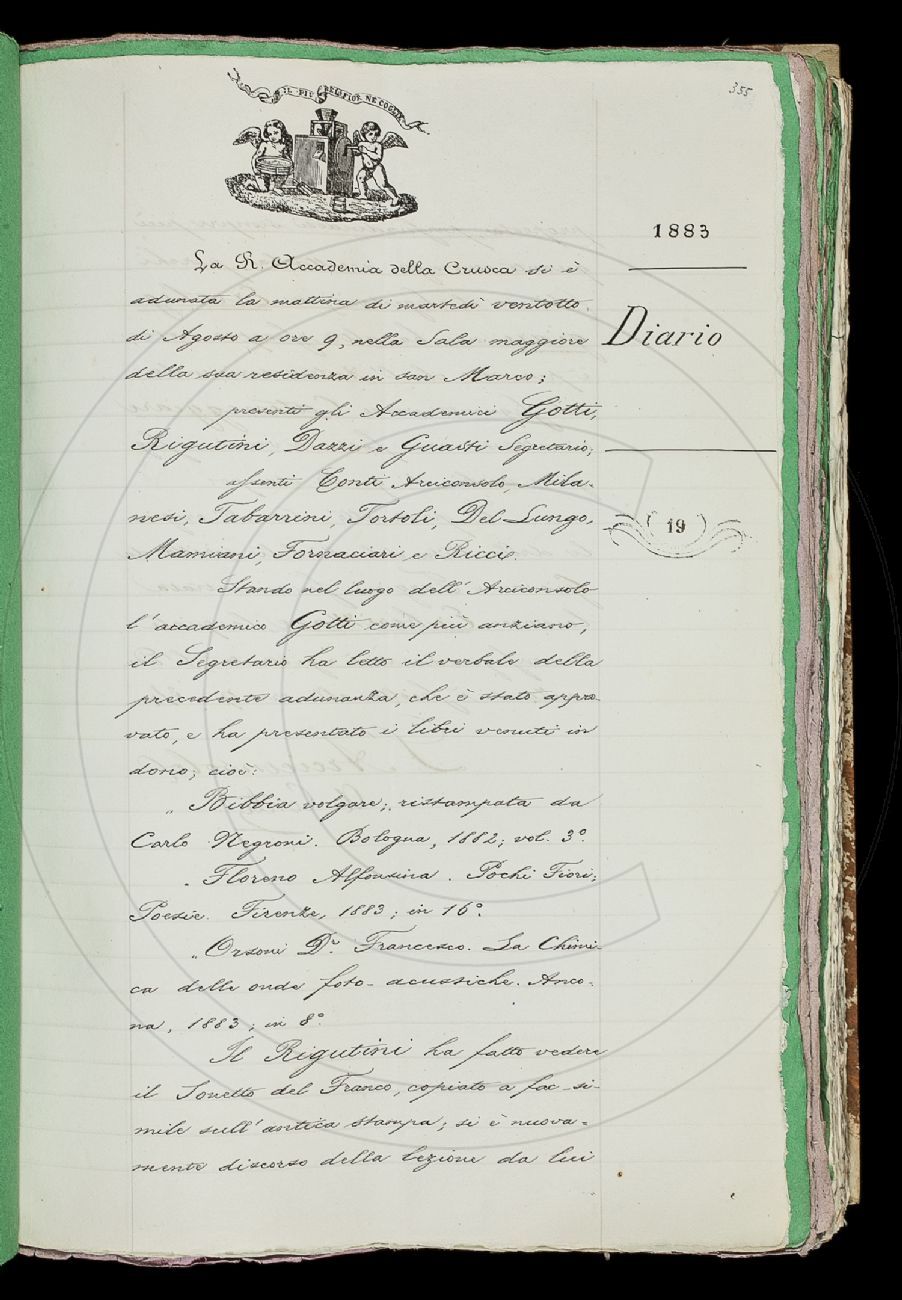 355
IL PIÙ BEL FIOR NE COGLIE
1883
Diario
19
La R. Accademia della Crusca si è
adunata la mattina di martedì ventotto
di Agosto a ore 9, nella Sala maggiore
della sua residenza in san Marco;
presenti gli Accademici Gotti,
Rigutini, Dazzi e Guasti Segretario;
assenti Conti Arciconsolo, Mila-
nesi, Tabarrini, Tortoli, Del Lungo,
Mamiani, Fornaciari e Ricci.
Stando nel luogo dell' Arciconsolo
l' accademico Gotti come più anziano,
il Segretario ha letto il verbale della
precedente adunanza, che è stato appro
vato, e ha presentato i libri venuti in
dono; cioè:
„ Bibbia volgare; ristampata da
Carlo Negroni. Bologna, 1882; vol. 3°.
„ Floreno Alfonsina. Pochi Fiori;
Poesie. Firenze, 1883; in 16°.
„ Orsoni Dr. Francesco. La Chimi-
ca delle onde foto-acustiche. Anco-
na, 1883; in 8°.
Il Rigutini ha fatto vedere
il Sonetto del Franco, copiato a fac-si-
mile sull' antica stampa; si è nuova-
mente discorso della lezione da lui